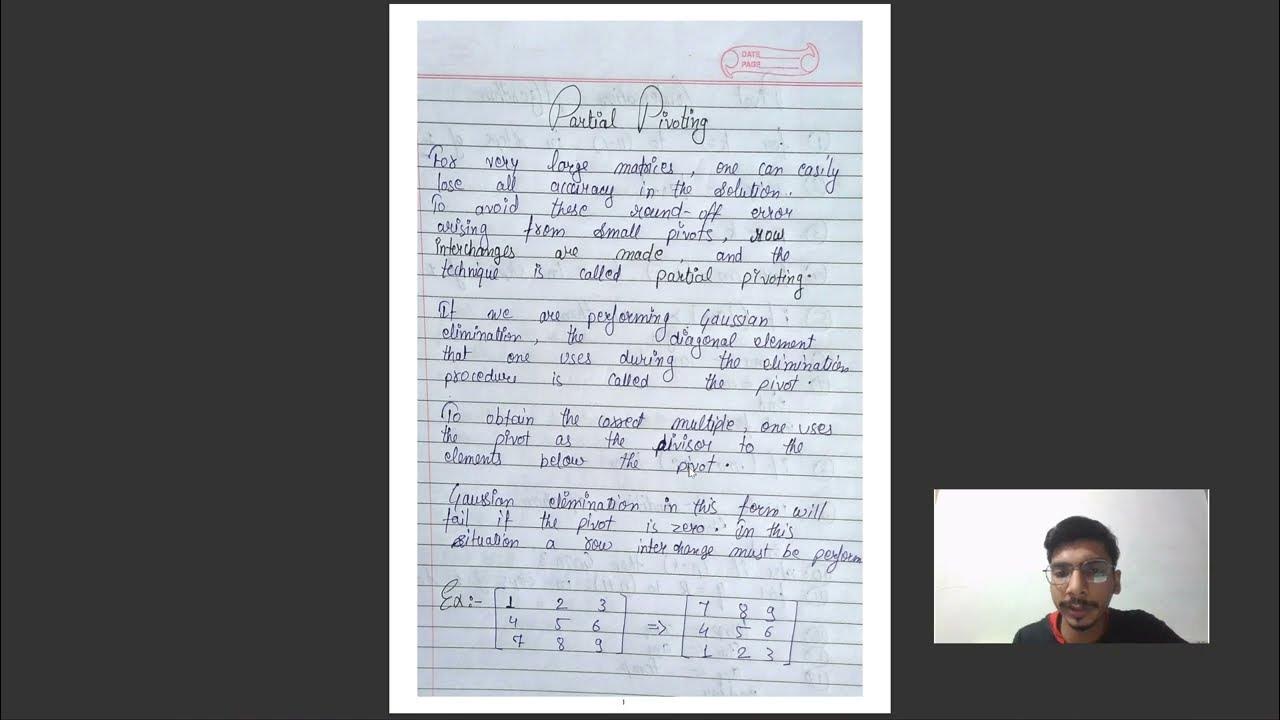 DATE
PAGE
Partial Pivoting
For very large matrices, one can easily
lose all accuracy in the solution.
To avoid these round-off error
arising from small pivots, row
interchanges are made, and the
technique is called partial pivoting.
If we are performing Gaussian
elimination, the diagonal element
that one uses during the elimination
procedure is called the pivot.
To obtain the correct multiple, one uses
the pivot as the divisor to the
elements below the pivot.
Gaussian elimination in this form will
fail if the pivot is zero. In this
situation a row interchange must be perform
Ex:- [ 1 2 3 ] => [ 7 8 9 ]
[ 4 5 6 ] [ 4 5 6 ]
[ 7 8 9 ] [ 1 2 3 ]
1